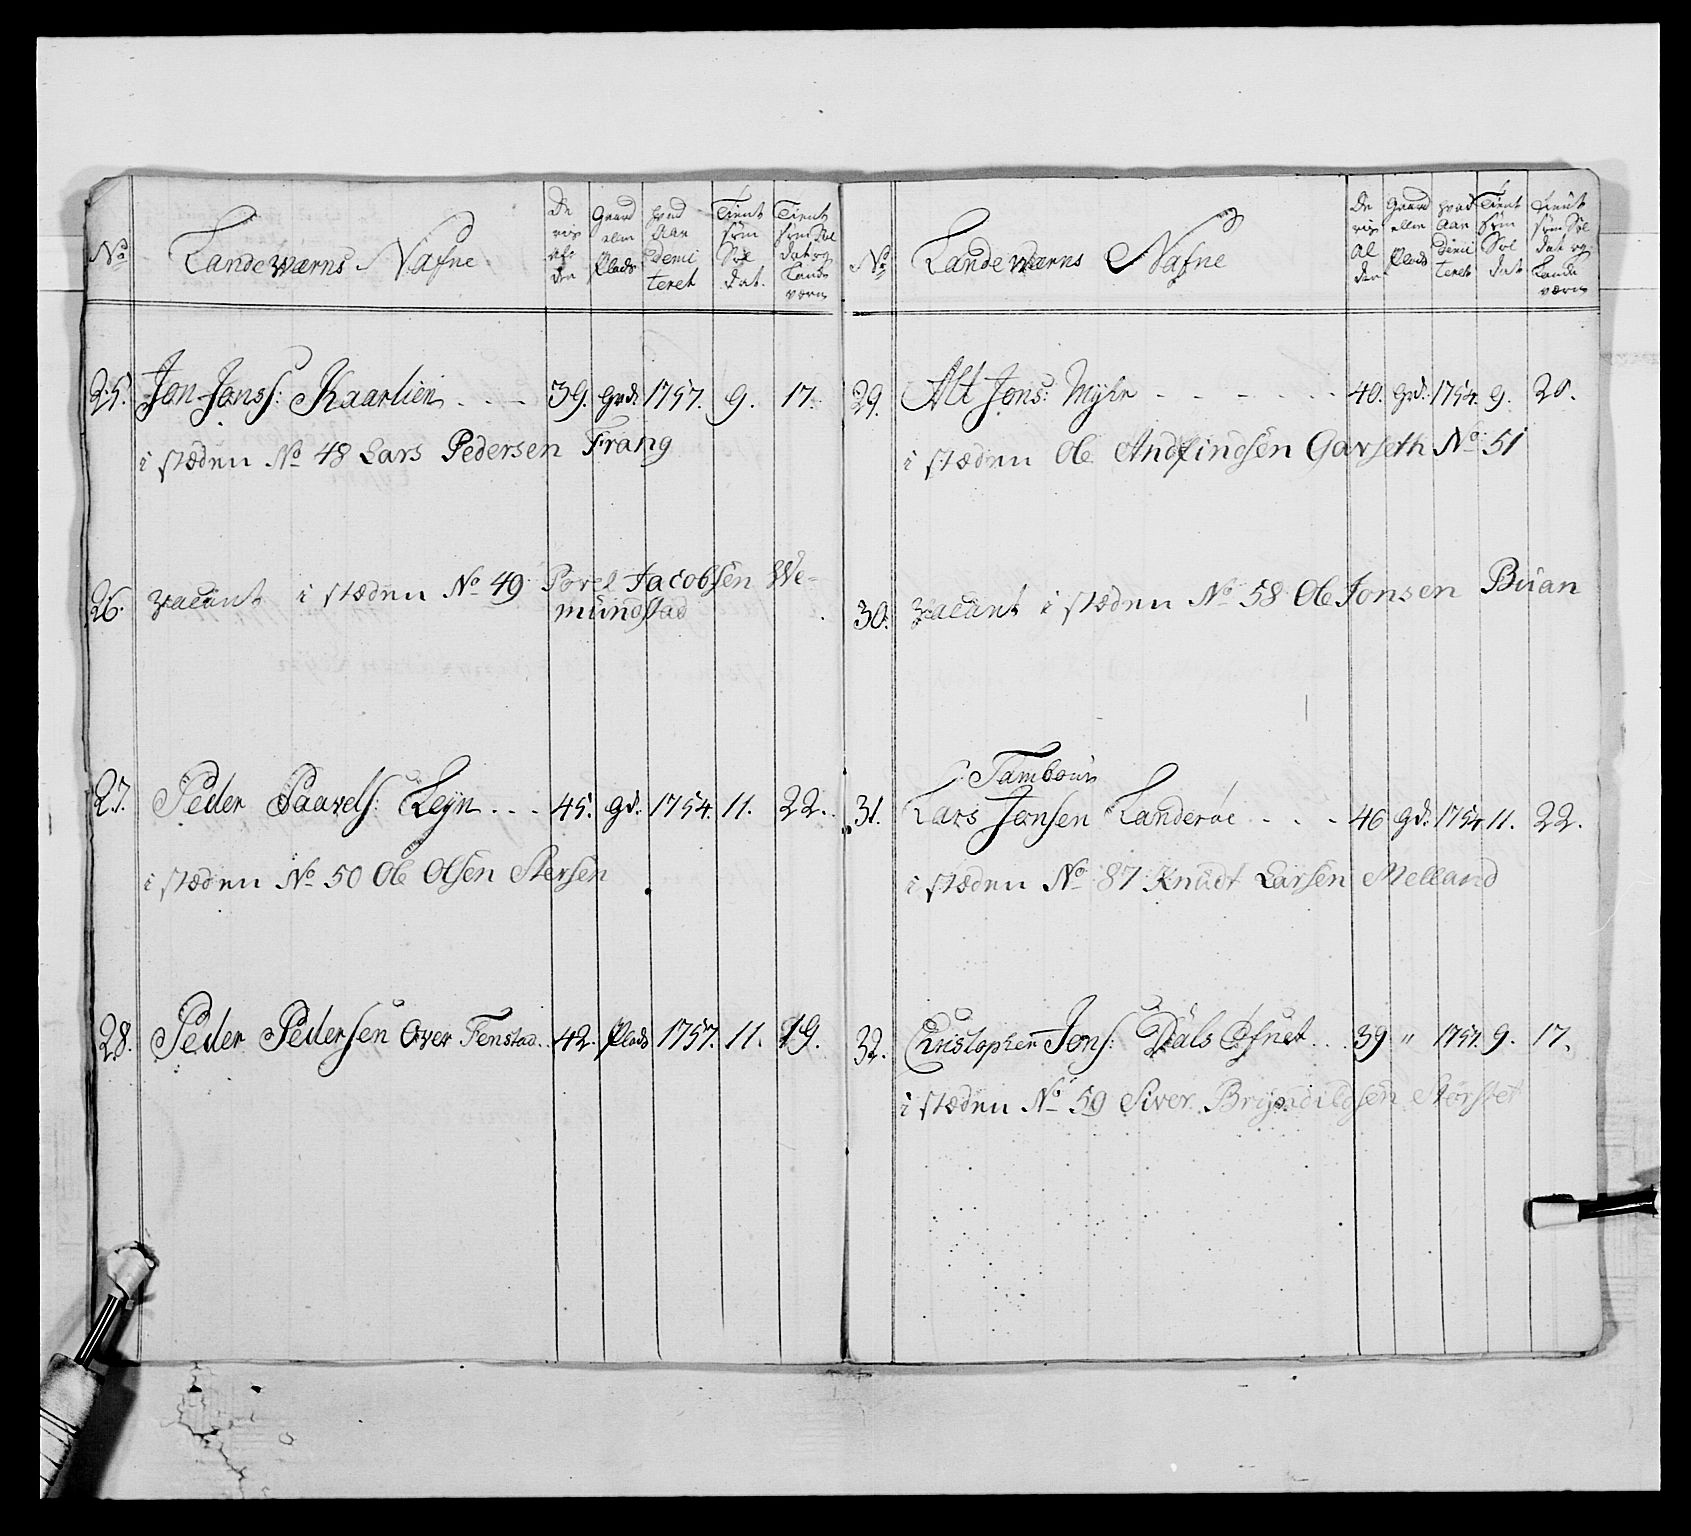 No Lande wærns Nafne De res al der Gaard eller Plads hvad Aar Demi teret Tient som Sol dat. Tient som Sol dat og Landeværn
25. Jon Jonss: Kaarlien - - - 39. Grd. 1757. 9. 17.
i stæden No 48 Lars Pedersen Frang
26. vacant i stæden No 49 Povel Jacobsen We-
mundstad
27. Peder Paavels: Legn - - - 45. gd. 1754. 11. 22.
i stæden No 50 Ole Olsen Stersen
28. Peder Pedersen Over Fenstad. 42. Plads 1757. 11. 19.
No Lande wærns Nafne De res al der Gaard eller Plads hvad Aar Dimi teret Tient som Sol dat Tient som Sol dat og Lande værn
29. Alt Jons: Myhr - - - - - - 40. Gd. 1754. 9. 20.
i stæden Ole Andfindsen Garseth No 51
30. vacant i stæden No 58 Ole Jonsen Buan
Tambour
31. Lars Jonsen Landerøe - - - 46 gd. 1754 11. 22.
i stæden No 87 Knudt Larsen Melland
32. Christopher Jons: Dals 39 " 1757. 9. 17.
i stæden No 59 Siver Bryndildsen Størset